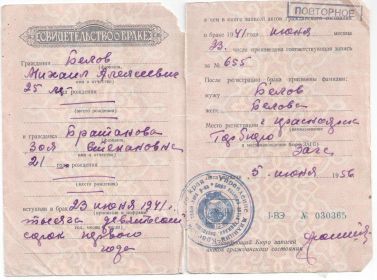 СВИДЕТЕЛЬСТВО О БРАКЕ
Гражданин Белов
Михаил Алексеевич
25 л. рождения
(место рождения)
и гражданка Братанова
Зоя Степановна
21 г. рождения
(место рождения)
вступили в брак 23 июня 1941 г.
тысяча девятьсот
сорок первого
года
ПОВТОРНОЕ
о чем в книге записей актов гражданского состояния
о браке 1941 года июня месяца
23 числа произведена соответствующая запись
за № 655
После регистрации брака присвоены фамилии:
мужу Белов
жене Белова
Место регистрации г. Красноярск
Гор бюро
Загс
5 июня 1956
I-ВЭ № 030365
Заведующий Бюро записей
актов гражданского состояния